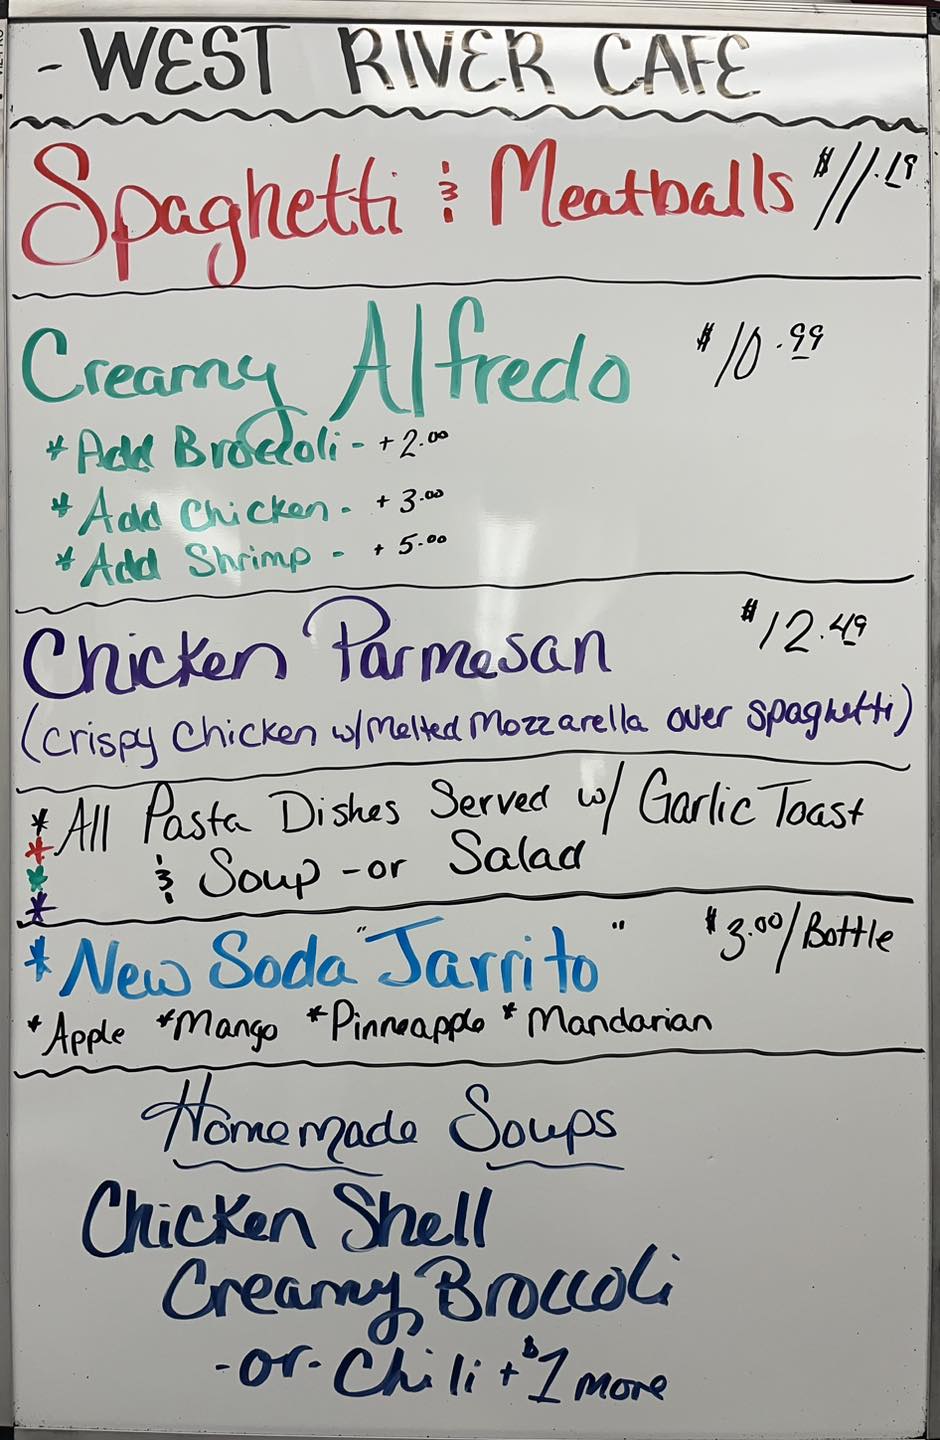 - WEST RIVER CAFE
Spaghetti & Meatballs $11.19
Creamy Alfredo $10.99
* Add Broccoli - +2.00
* Add Chicken - +3.00
* Add Shrimp - +5.00
Chicken Parmesan $12.49
(crispy chicken w/ Melted Mozzarella over spaghetti)
* All Pasta Dishes Served w/ Garlic Toast
*
* & Soup -or Salad
*
* New Soda "Jarrito" $3.00/Bottle
* Apple * Mango * Pinneapple * Mandarian
Homemade Soups
Chicken Shell
Creamy Broccoli
-or- Chili + $1 more